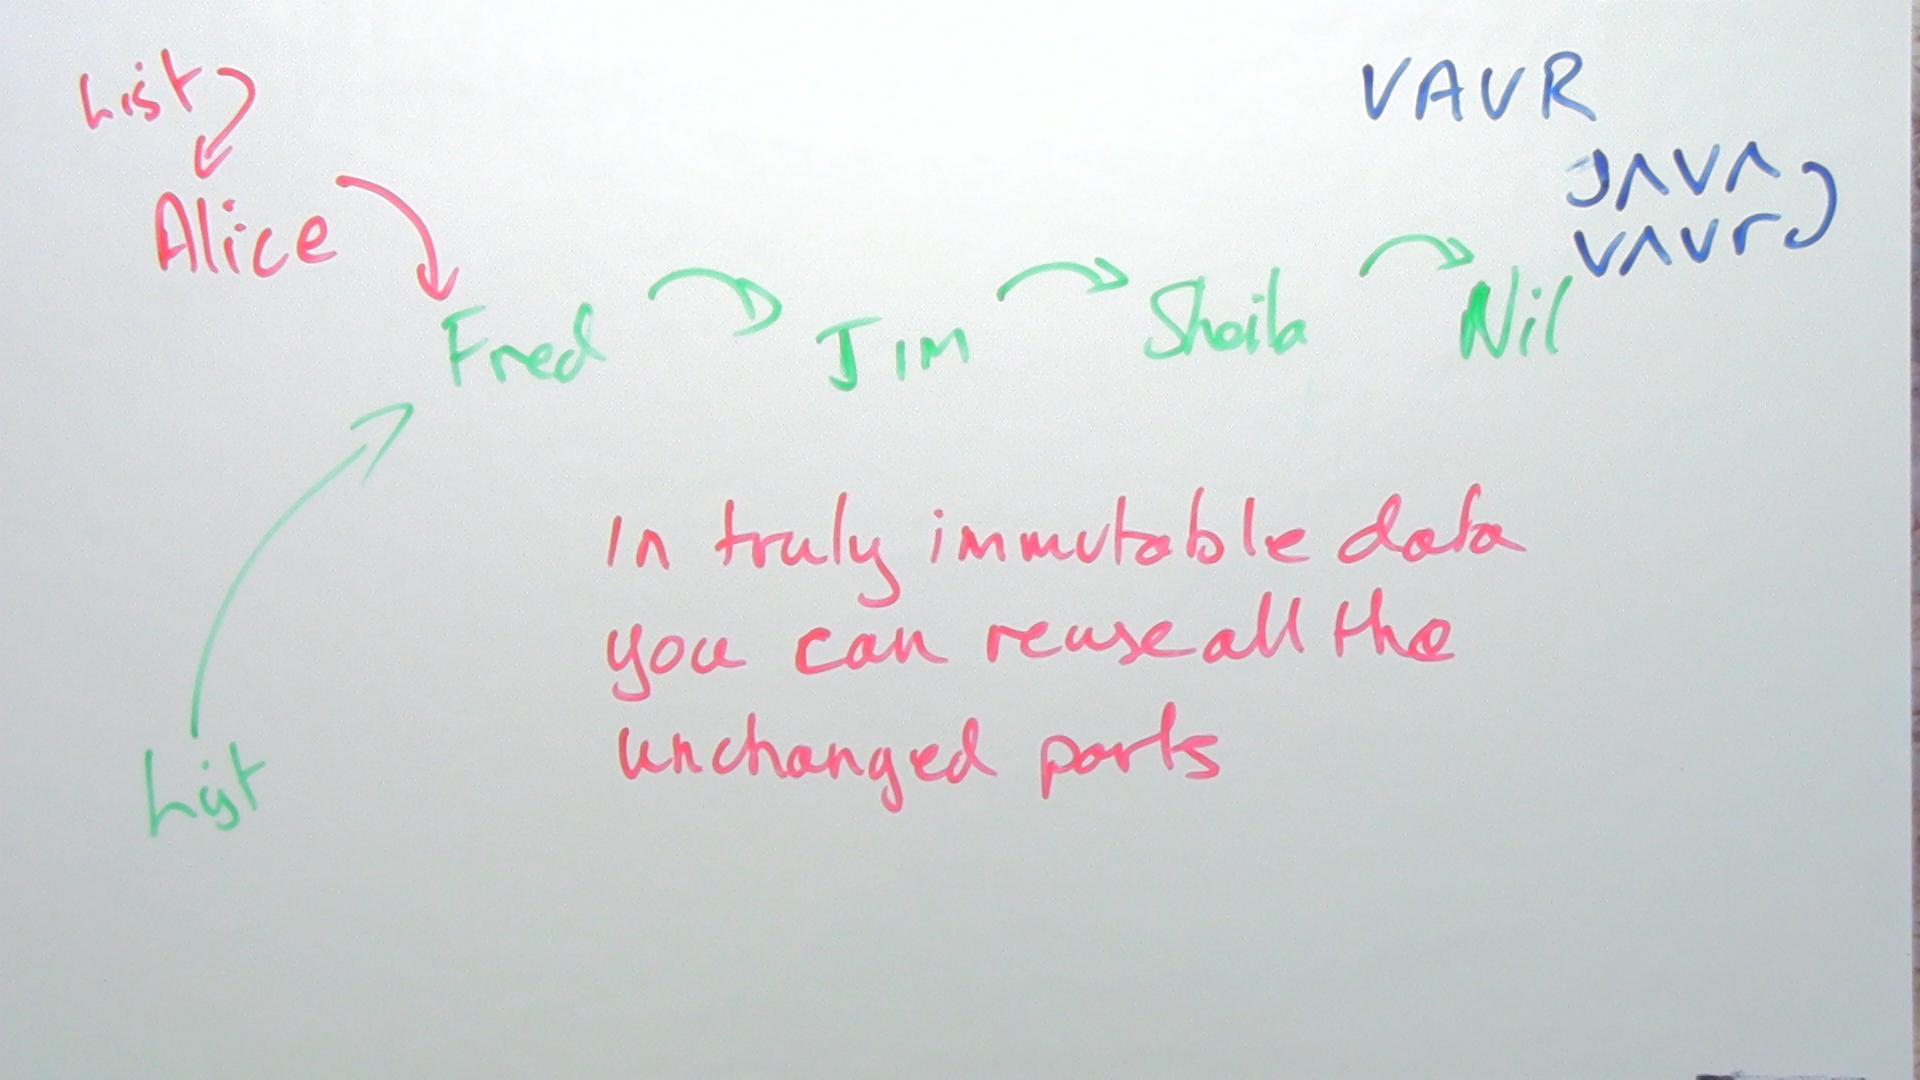 List
VAVR
JAVA
vavr
Alice
Fred
Jim
Sheila
Nil
In truly immutable data
you can reuse all the
unchanged parts
List